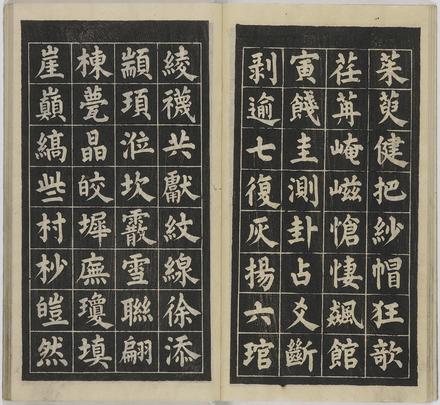 茱萸健把紗帽狂歌
荏苒崦嵫愴悽飆館
寅餞圭測卦占爻斷
剥逾七復灰揚六琯
綾襪共獻紋線徐添
顓頊涖坎霰雪聯翩
棟甍晶皎墀廡瓊填
崖巔縞些村杪皚然